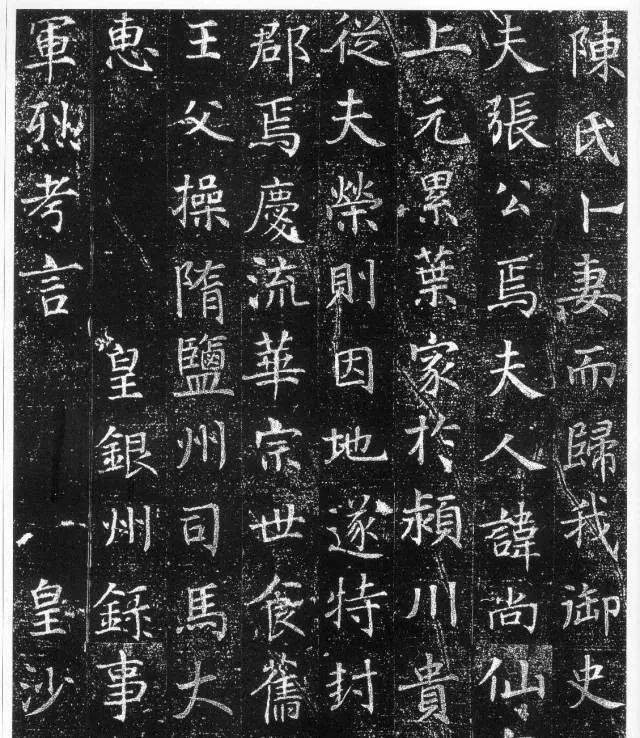 陳氏卜妻而歸我御史
夫張公焉夫人諱尚仙
上元累葉家於潁川貴
從夫榮則因地遂特封
郡焉慶流華宗世食舊
王父操隋鹽州司馬大
惠皇銀州錄事
軍烈考言皇沙